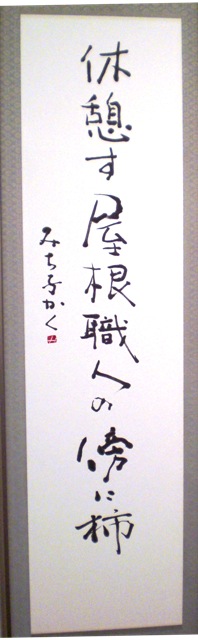 休憩す屋根職人の傍に柿
みち子かく